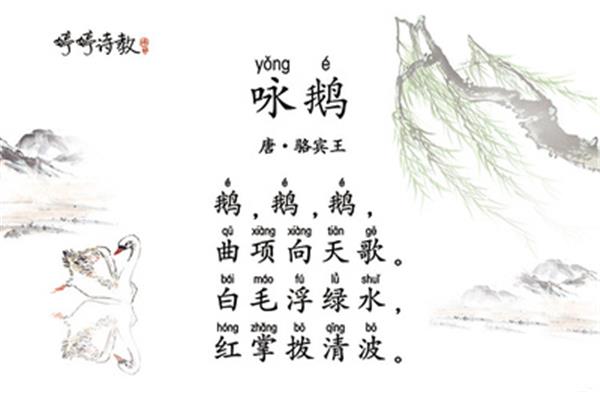 婷婷诗教
yǒng é
咏鹅
唐·骆宾王
é é é
鹅，鹅，鹅，
qū xiàng xiàng tiān gē
曲项向天歌。
bái máo fú lǜ shuǐ
白毛浮绿水，
hóng zhǎng bō qīng bō
红掌拨清波。